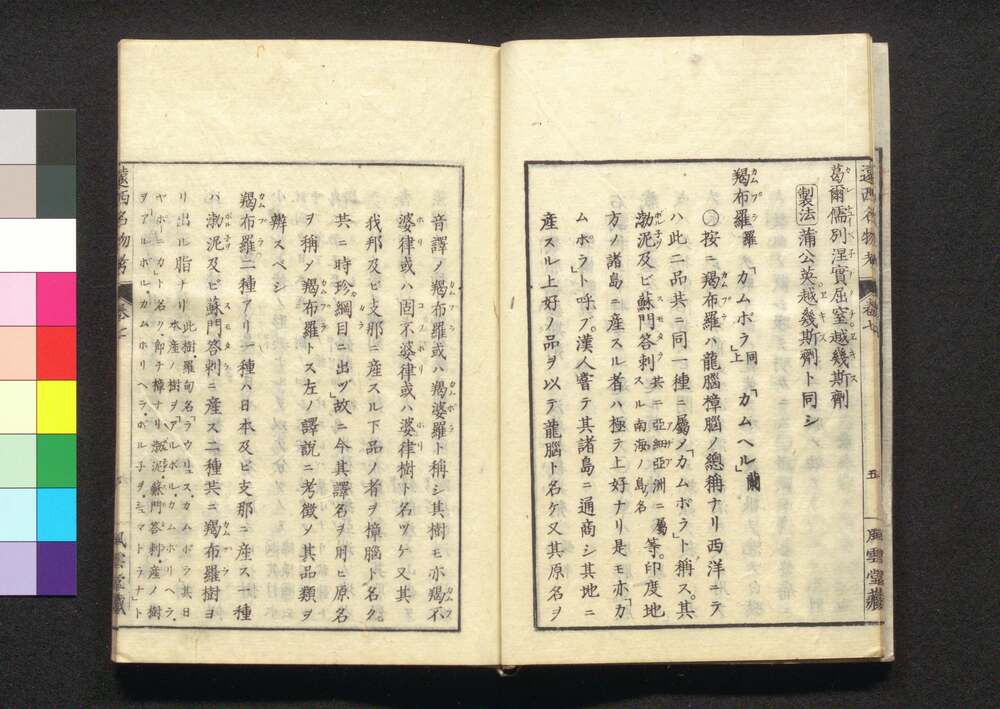 遠西名物考 卷七 五 風雲堂藏
葛爾儒別涅實屈窒越幾斯劑
製法 蒲公英越幾斯劑ト同シ
羯布羅 羅「カムポラ」上同「カムヘル」蘭
○按ニ羯布羅ハ龍腦樟腦ノ總稱ナリ西洋ニテ
ハ此二品共ニ同一種ニ屬メ「カムポラ」ト稱ス。其
渤泥及ビ蘇門答剌 共ニ亞細亞洲ニ屬スル南海ノ島名 等。印度地
方ノ諸島ニ產スル者ハ極テ上好ナリ是モ亦「カ
ムポラ」ト呼ブ。漢人嘗テ其諸島ニ通商シ其地ニ
產スル上好ノ品ヲ以テ龍腦ト名ケ又其原名ヲ
音譯メ羯布羅或ハ羯婆羅ト稱シ其樹モ亦羯不
婆律或ハ固不婆律或ハ婆律樹ト名ヅケ又其
我邦及ビ支那ニ產スル下品ノ者ヲ樟腦ト名ク。
共ニ時珍綱目ニ出ヅ」故ニ今其譯名ヲ用ヒ原名
ヲ稱メ羯布羅トス左ノ譯說ニ考徵メ其品類ヲ
辨スベシ
羯布羅二種アリ一種ハ日本及ビ支那ニ產ス一種
ハ渤泥及ビ蘇門答剌ニ產ス二種共ニ羯布羅樹ヨ
リ出ル脂ナリ 此樹羅甸名「ラウリュス、カムポラ」其日
本產ノ樹ヲ「アルボル、カムホリヘラ、
ヤポニカ」ト名ク、即チ樟ナリ渤泥蘇門答剌產ノ樹
ヲ「アルボル、カムホリヘラ、ボル子ヲ、シュマトラナ」ト
遠西名物考 卷七 風雲堂藏